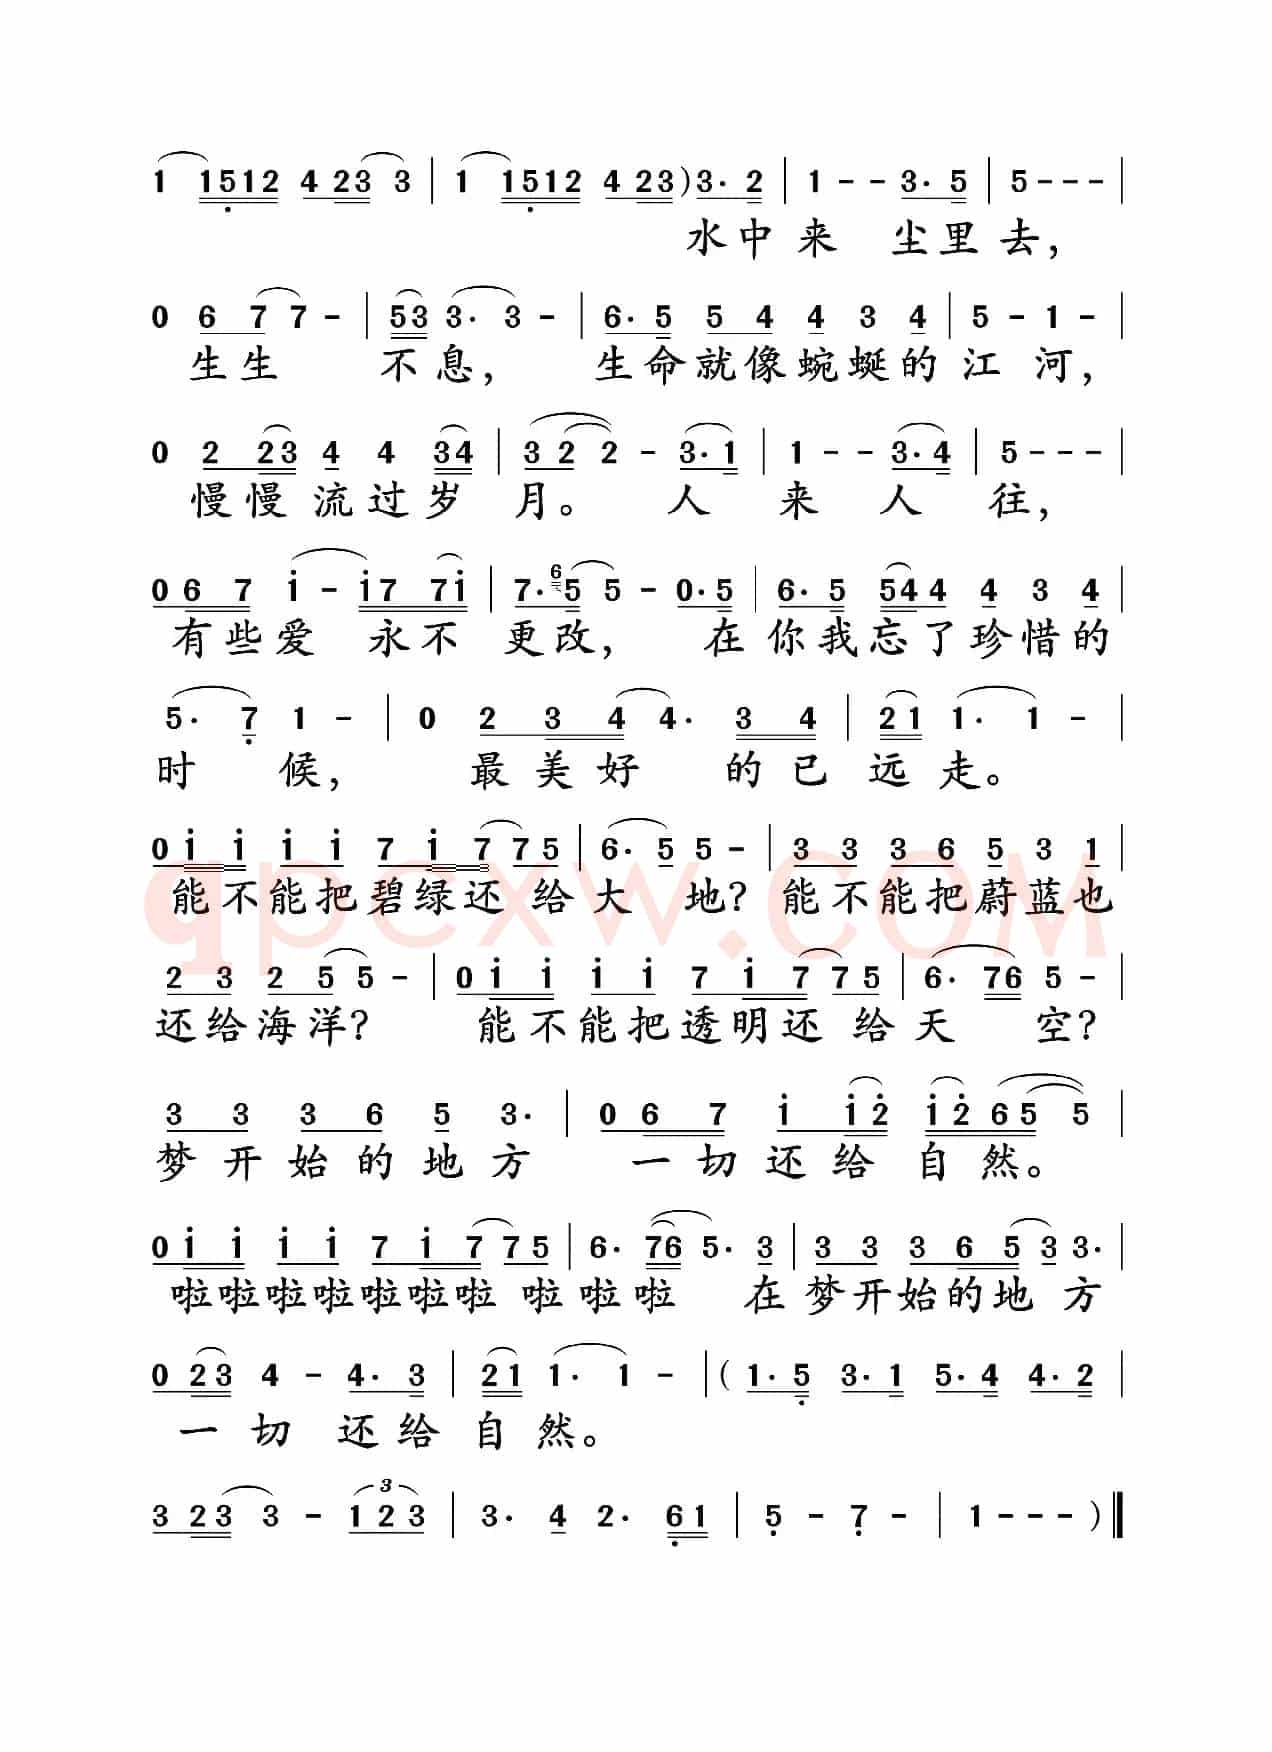 1 1512 4 23 3 | 1 1512 4 23 ) 3· 2 | 1 - - 3· 5 | 5 - - - |
水中来 尘里去，
0 6 7 7 - | 53 3· 3 - | 6· 5 5 4 4 3 4 | 5 - 1 - |
生生 不息， 生命就像蜿蜒的江河，
0 2 23 4 4 34 | 3 2 2 - 3· 1 | 1 - - 3· 4 | 5 - - - |
慢慢流过岁月。 人来人往，
0 6 7 i - i7 7i | 7· 6 5 5 - 0· 5 | 6· 5 54 4 4 3 4 |
有些爱 永不 更改， 在你我忘了珍惜的
5· 7 1 - | 0 2 3 4 4· 3 4 | 21 1· 1 - |
时候， 最美好 的已远走。
0 i i i i 7 i 7 7 5 | 6· 5 5 - | 3 3 3 6 5 3 1 |
能不能把碧绿还 给大 地？能不能把蔚蓝也
qpcxw.COM
2 3 2 5 5 - | 0 i i i i 7 i 7 7 5 | 6· 76 5 - |
还给海洋？ 能不能把透明还 给天 空？
3 3 3 6 5 3· | 0 6 7 i i2 i2 6 5 5 |
梦开始的地方 一切还给自然。
0 i i i i 7 i 7 7 5 | 6· 76 5· 3 | 3 3 3 6 5 3 3· |
啦啦啦啦啦啦啦 啦啦啦 在梦开始的地方
0 23 4 - 4· 3 | 21 1· 1 - | ( 1· 5 3· 1 5· 4 4· 2 |
一切 还给自然。
3 23 3 - 3 1 2 3 | 3· 4 2· 61 | 5 - 7 - | 1 - - - )